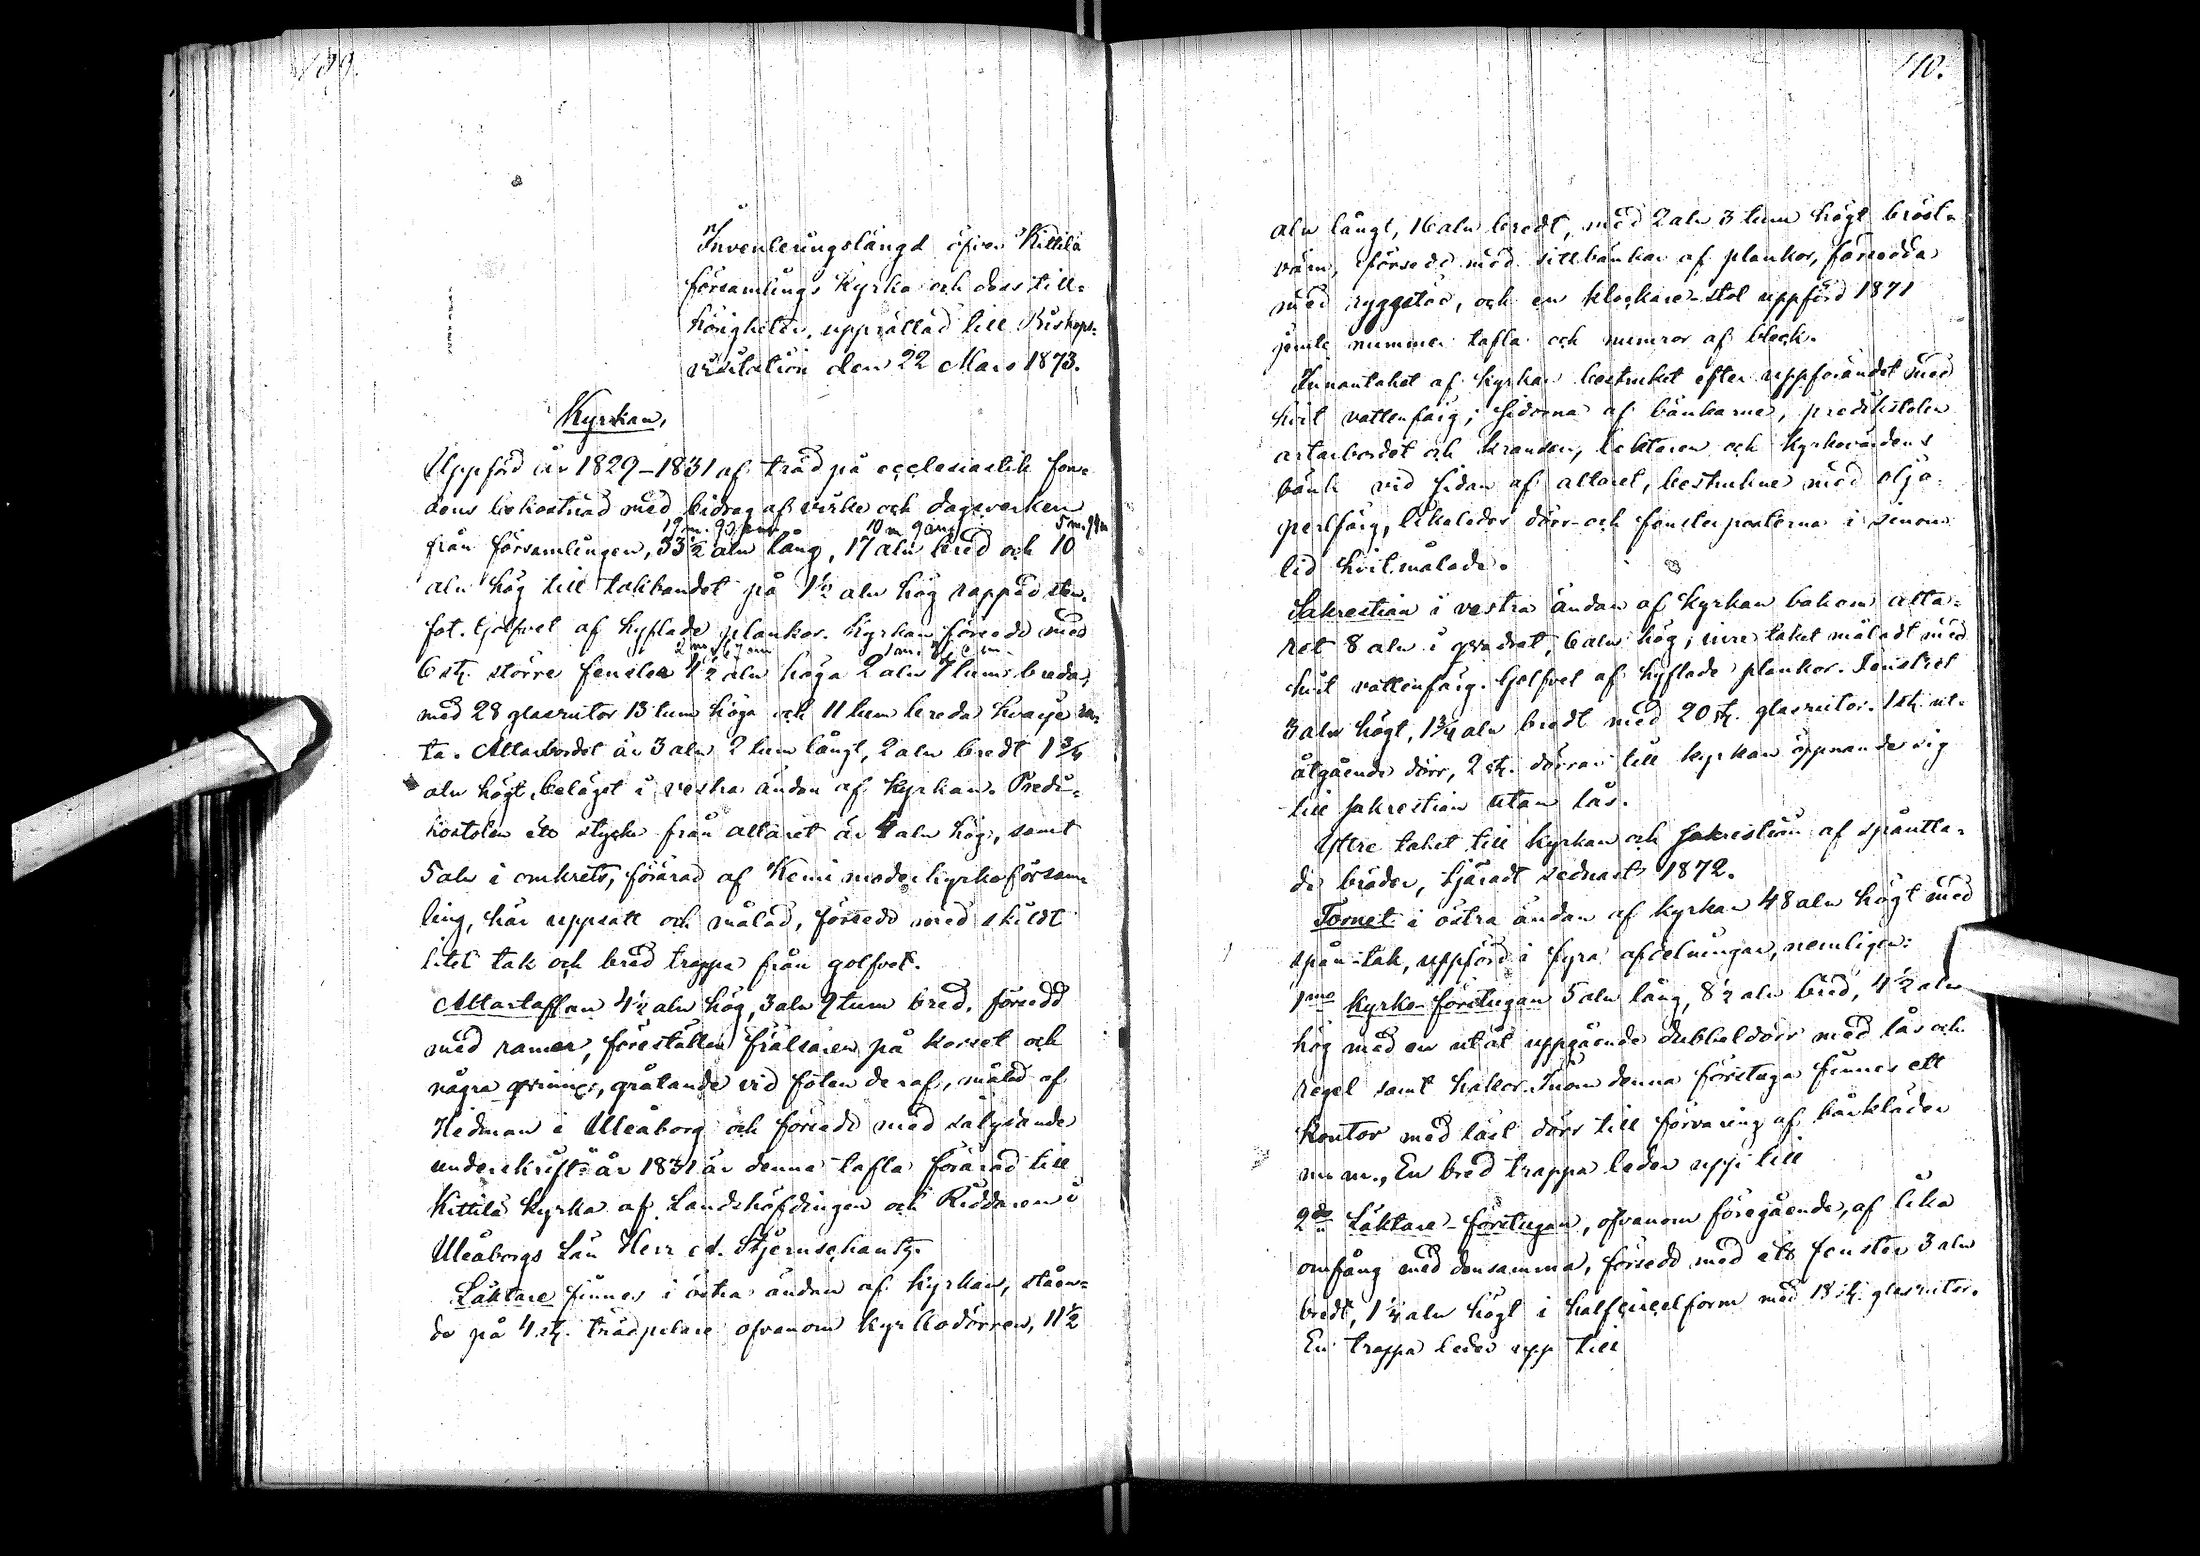 109.
Inventeringslängd öfver Kittilä
församlings Kyrka och dess till-
hörigheter, upprättad till Biskops-
visitation den 22 Mars 1873.
Kyrkan,
Uppförd år 1829-1831 af träd på ecclesiastik fon-
dens bekostnad med bidrag af virke och dagsverken
från församlingen, 33½ aln lång, 17 aln bred och 10
aln hög till takbandet på 1½ aln hög rappad sten-
fot. Golfvet af hyflade plankor. Kyrkan försedd med
6 st. större fenster 4½ aln höga 2 aln 7 tum breda,
med 28 glasrutor 13 tum höga och 11 tum breda hvarje ru-
ta. Altarbordet är 3 aln 2 tum långt, 2 aln bredt 1¾
aln högt, beläget i vestra ändan af Kyrkan. Predi-
kostolen ett stycke från altaret är 4 aln hög, samt
5 aln i omkrets, förärad af Kemi moderkyrkoförsam-
ling, här uppsatt och målad, försedd med skildt
litet tak och bred trappa från golfvet.
Altartaflan 4½ aln hög, 3 aln 9 tum bred, försedd
med ramar, föreställer frälsaren på korset och
några qvinnor, gråtande vid foten deraf, målad af
Hedman i Uleåborg och försedd med sålydande
underskrift: år 1831 är denna tafla förärad till
Kittilä Kyrka af Landshöfdingen och Riddaren i
Uleåborgs Län Herr Stjernschantz.
Läktare finnes i östra ändan af Kyrkan, ståen-
de på 4 st. trädpelare ofvanom Kyrkodörren, 11½
110.
aln långt, 16 aln bredt, med 2 aln 3 tum högt bröst-
värn, försedd med sittbänkar af plankor, försedda
med ryggstöd, och en klockare-stol uppförd 1871
jemte nummer tafla och numror af bleck.
Innantaket af kyrkan bestruket efter uppförandet med
hvit vattenfärg; sidorna af bänkarne, predikstolen
altarbordet och kransen, lektaren och Kyrkovärdens
bänk vid sidan af altaret, bestrukne med olja-
perlfärg, likaledes dörr- och fensterposterna i sinom
tid hvitmålade.
Sakrestian i vestra ändan af Kyrkan bakom alta-
ret 8 aln i qvadrat, 6 aln hög; inre taket måladt med
hvit vattenfärg. Golfvet af hyflade plankor. Fenstret
3 aln högt, 1¾ aln bredt med 20 st. glasrutor. 1 st. ut-
åtgående dörr, 2 st. dörrar till kyrkan öppnande sig
till sakrestian utan lås.
Yttre taket till kyrkan och sakrestian af spåntta-
de bräder, tjäradt sednast 1872.
Tornet i östra ändan af kyrkan 48 aln högt med
spån-tak, uppförd i fyra afdelningar, nemligen:
1mo kyrko-förstugan 5 aln lång, 8½ aln bred, 4½ aln
hög med en utåt uppgående dubbeldörr med lås och
regel samt hakor. Inom denna förstuga finnes ett
kontor med låst dörr till förvaring af bårkläder
m. m., En bred trappa leder upp till
2do Läktare-förstugan, ofvanom föregående, af lika
omfång med densamma, försedd med ett fenster 3 aln
bredt, 1¼ aln högt i halfcirkelform med 18 st. glasrutor.
En trappa leder upp till